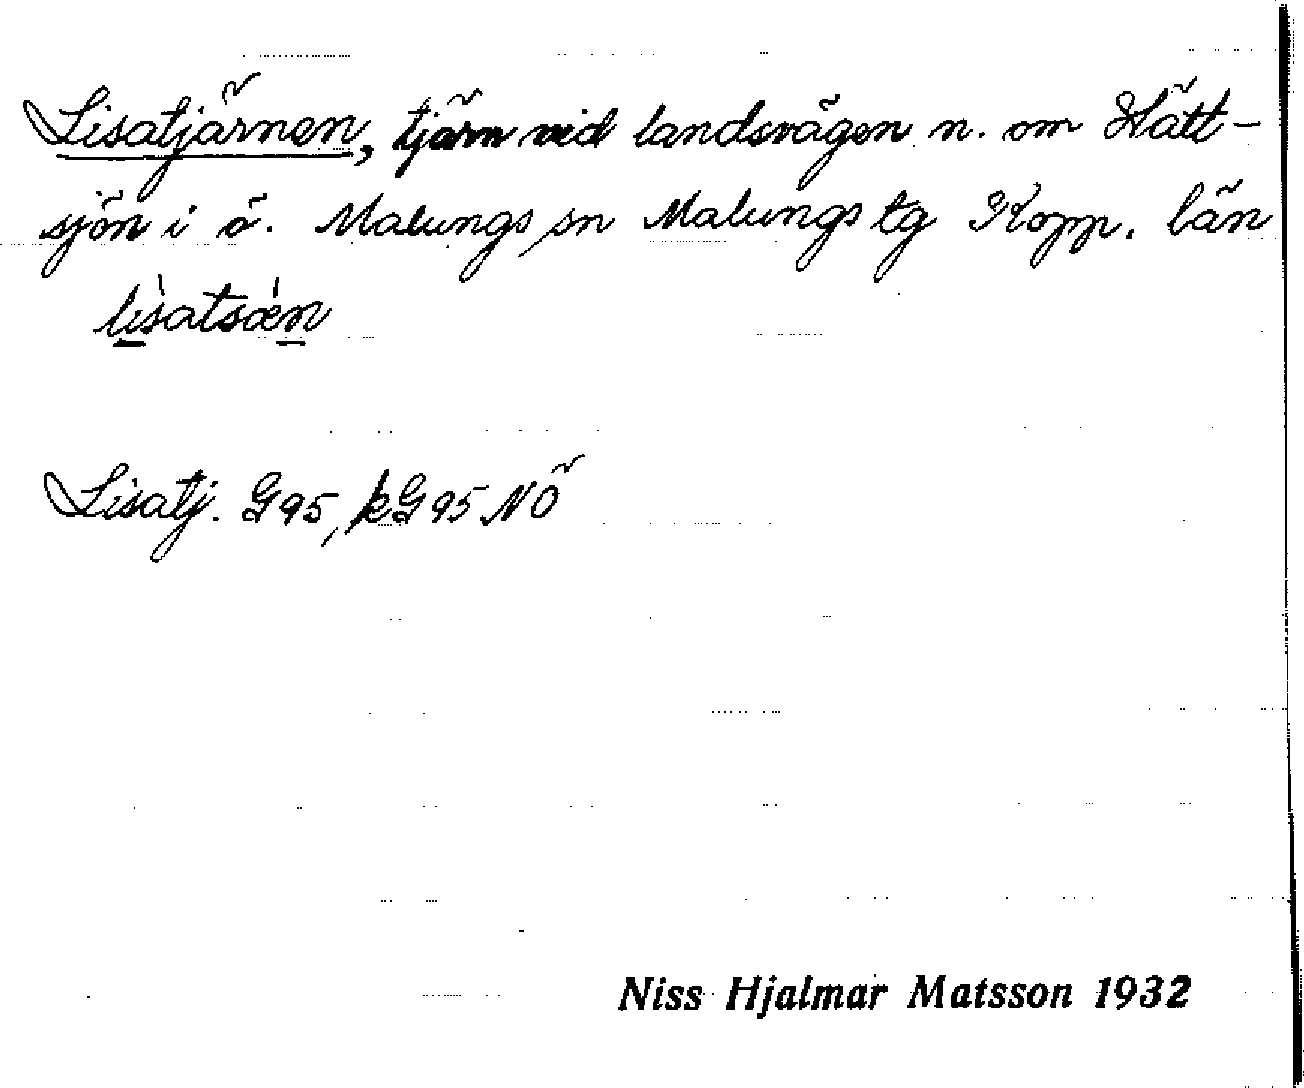 Lisatjärnen, tjärn vid landsvägen n. om Hätt-
sjön i ö. Malungs sn Malungs tg Kopp. län
lisatsän
Lisatj. G95, kG95NÖ
Niss Hjalmar Matsson 1932